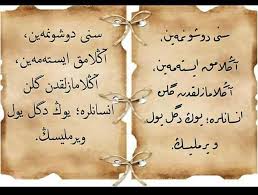 سنى دوشونمه‌ين،
آڭلامق ايسته‌مه‌ين،
آڭلامازلقدن گلن
انسانلره؛ يوڭ دگل يول
ويرمليسڭ.
سنى دوشونمه‌ين،
آڭلامق ايسته‌مه‌ين،
آڭلامازلقدن گلن
انسانلره؛ يوڭ دگل يول
ويرمليسڭ.